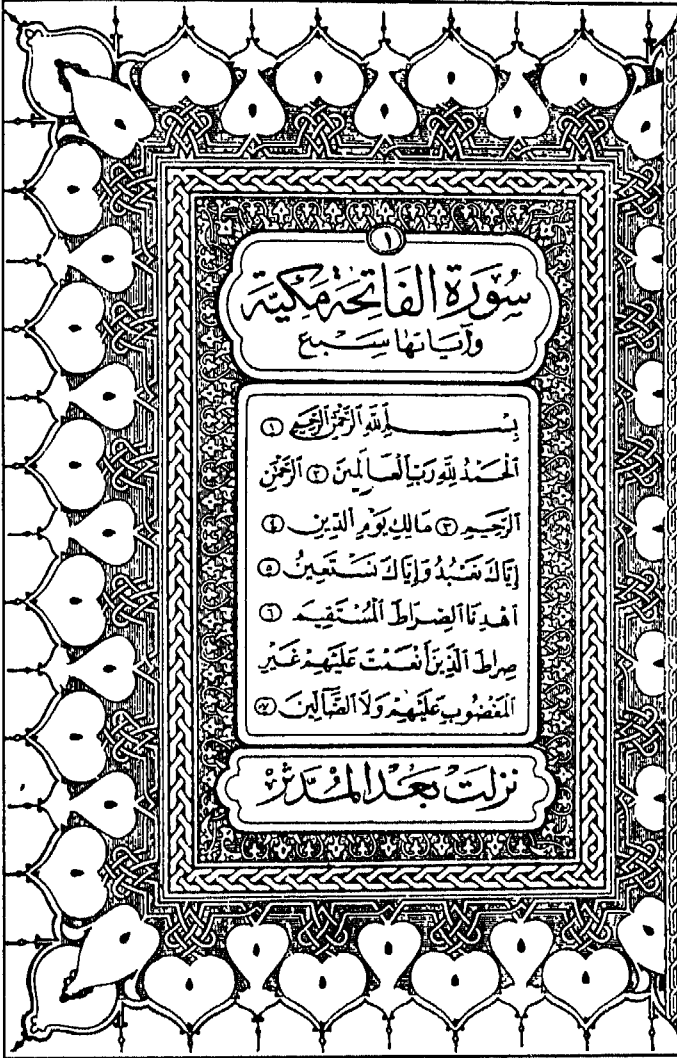 ١
سُورَةُ الفَاتِحَةِ مَكِّيَّة
وَآيَاتُهَا سَبْع
بِسْمِ ٱللَّهِ ٱلرَّحْمَٰنِ ٱلرَّحِيمِ ١
ٱلْحَمْدُ لِلَّهِ رَبِّ ٱلْعَالَمِينَ ٢ ٱلرَّحْمَٰنِ
ٱلرَّحِيمِ ٣ مَالِكِ يَوْمِ ٱلدِّينِ ٤
إِيَّاكَ نَعْبُدُ وَإِيَّاكَ نَسْتَعِينُ ٥
ٱهْدِنَا ٱلصِّرَاطَ ٱلْمُسْتَقِيمَ ٦
صِرَاطَ ٱلَّذِينَ أَنْعَمْتَ عَلَيْهِمْ غَيْرِ
ٱلْمَغْضُوبِ عَلَيْهِمْ وَلَا ٱلضَّآلِّينَ ٧
نَزَلَتْ بَعْدَ المُدَّثِّرْ